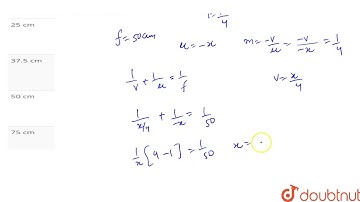 25 cm
37.5 cm
50 cm
75 cm
f=50cm
u=-x
m=-v/u=-v/-x=1/4
1/v+1/u=1/f
v=x/4
1/x/4+1/-x=1/50
1/x[4-1]=1/50
x=
doubtnut